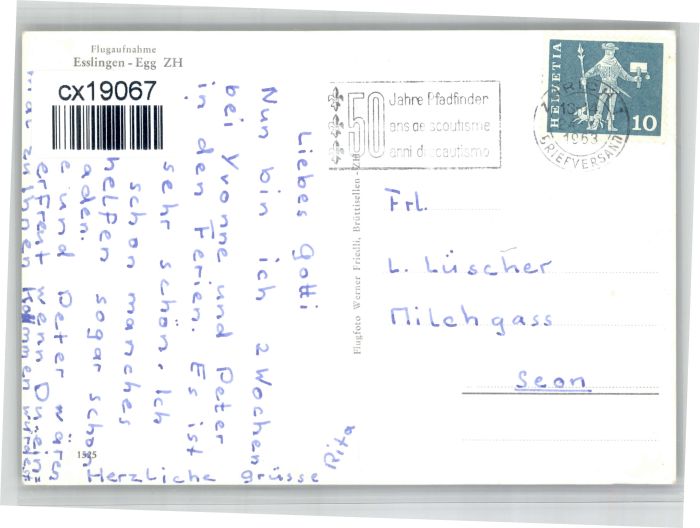 Flugaufnahme
Esslingen - Egg ZH
cx19067
50
Jahre Pfadfinder
ans de scoutisme
anni di scautismo
HELVETIA
10
1963
BRIEFVERSAND
Liebes Gotti
Nun bin ich 2 Wochen
bei Yvonne und Peter
in den Ferien. Es ist
sehr schön. Ich
helfen sogar schon
schon manches
aden.
e und Peter wären
erfreut wenn Du ein-
mal zu Ihnen kommen würdest
Herzliche grüsse
Rita
Flugfoto Werner Friedli, Brüttisellen - ZH
Frl.
L. Lüscher
Milchgass
Seon
1525